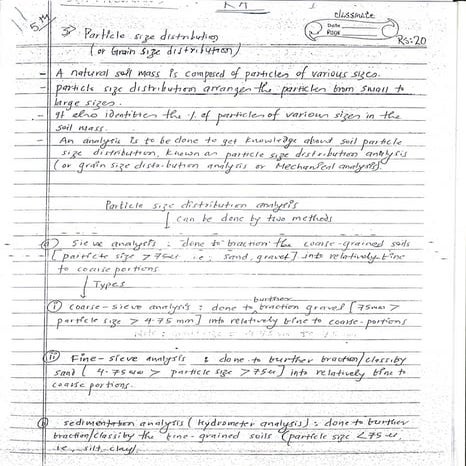 classmate
Date
Page
RS:20
5th
5) Particle size distribution
(or Grain size distribution)
- A natural soil mass is composed of particles of various sizes.
- particle size distribution arranges the particles from small to
large sizes.
- It also identifies the % of particles of various sizes in the
soil mass.
- An analysis is to be done to get knowledge about soil particle
size distribution, known as particle size distribution analysis
(or grain size distribution analysis or Mechanical analysis)
Particle size distribution analysis
can be done by two methods
a) Sieve analysis : done to fraction the coarse-grained soils
[particle size > 75u i.e; sand, gravel] into relatively fine
to coarse portions
Types
i) coarse-sieve analysis : done to further fraction gravel [75mm >
particle size > 4.75 mm] into relatively fine to coarse-portions
ii) Fine-sieve analysis : done to further fraction/classify
sand [4.75mm > particle size > 75u] into relatively fine to
coarse portions.
b) sedimentation analysis (Hydrometer analysis) : done to further
fraction/classify the fine-grained soils (particle size < 75 u
i.e, silt, clay)